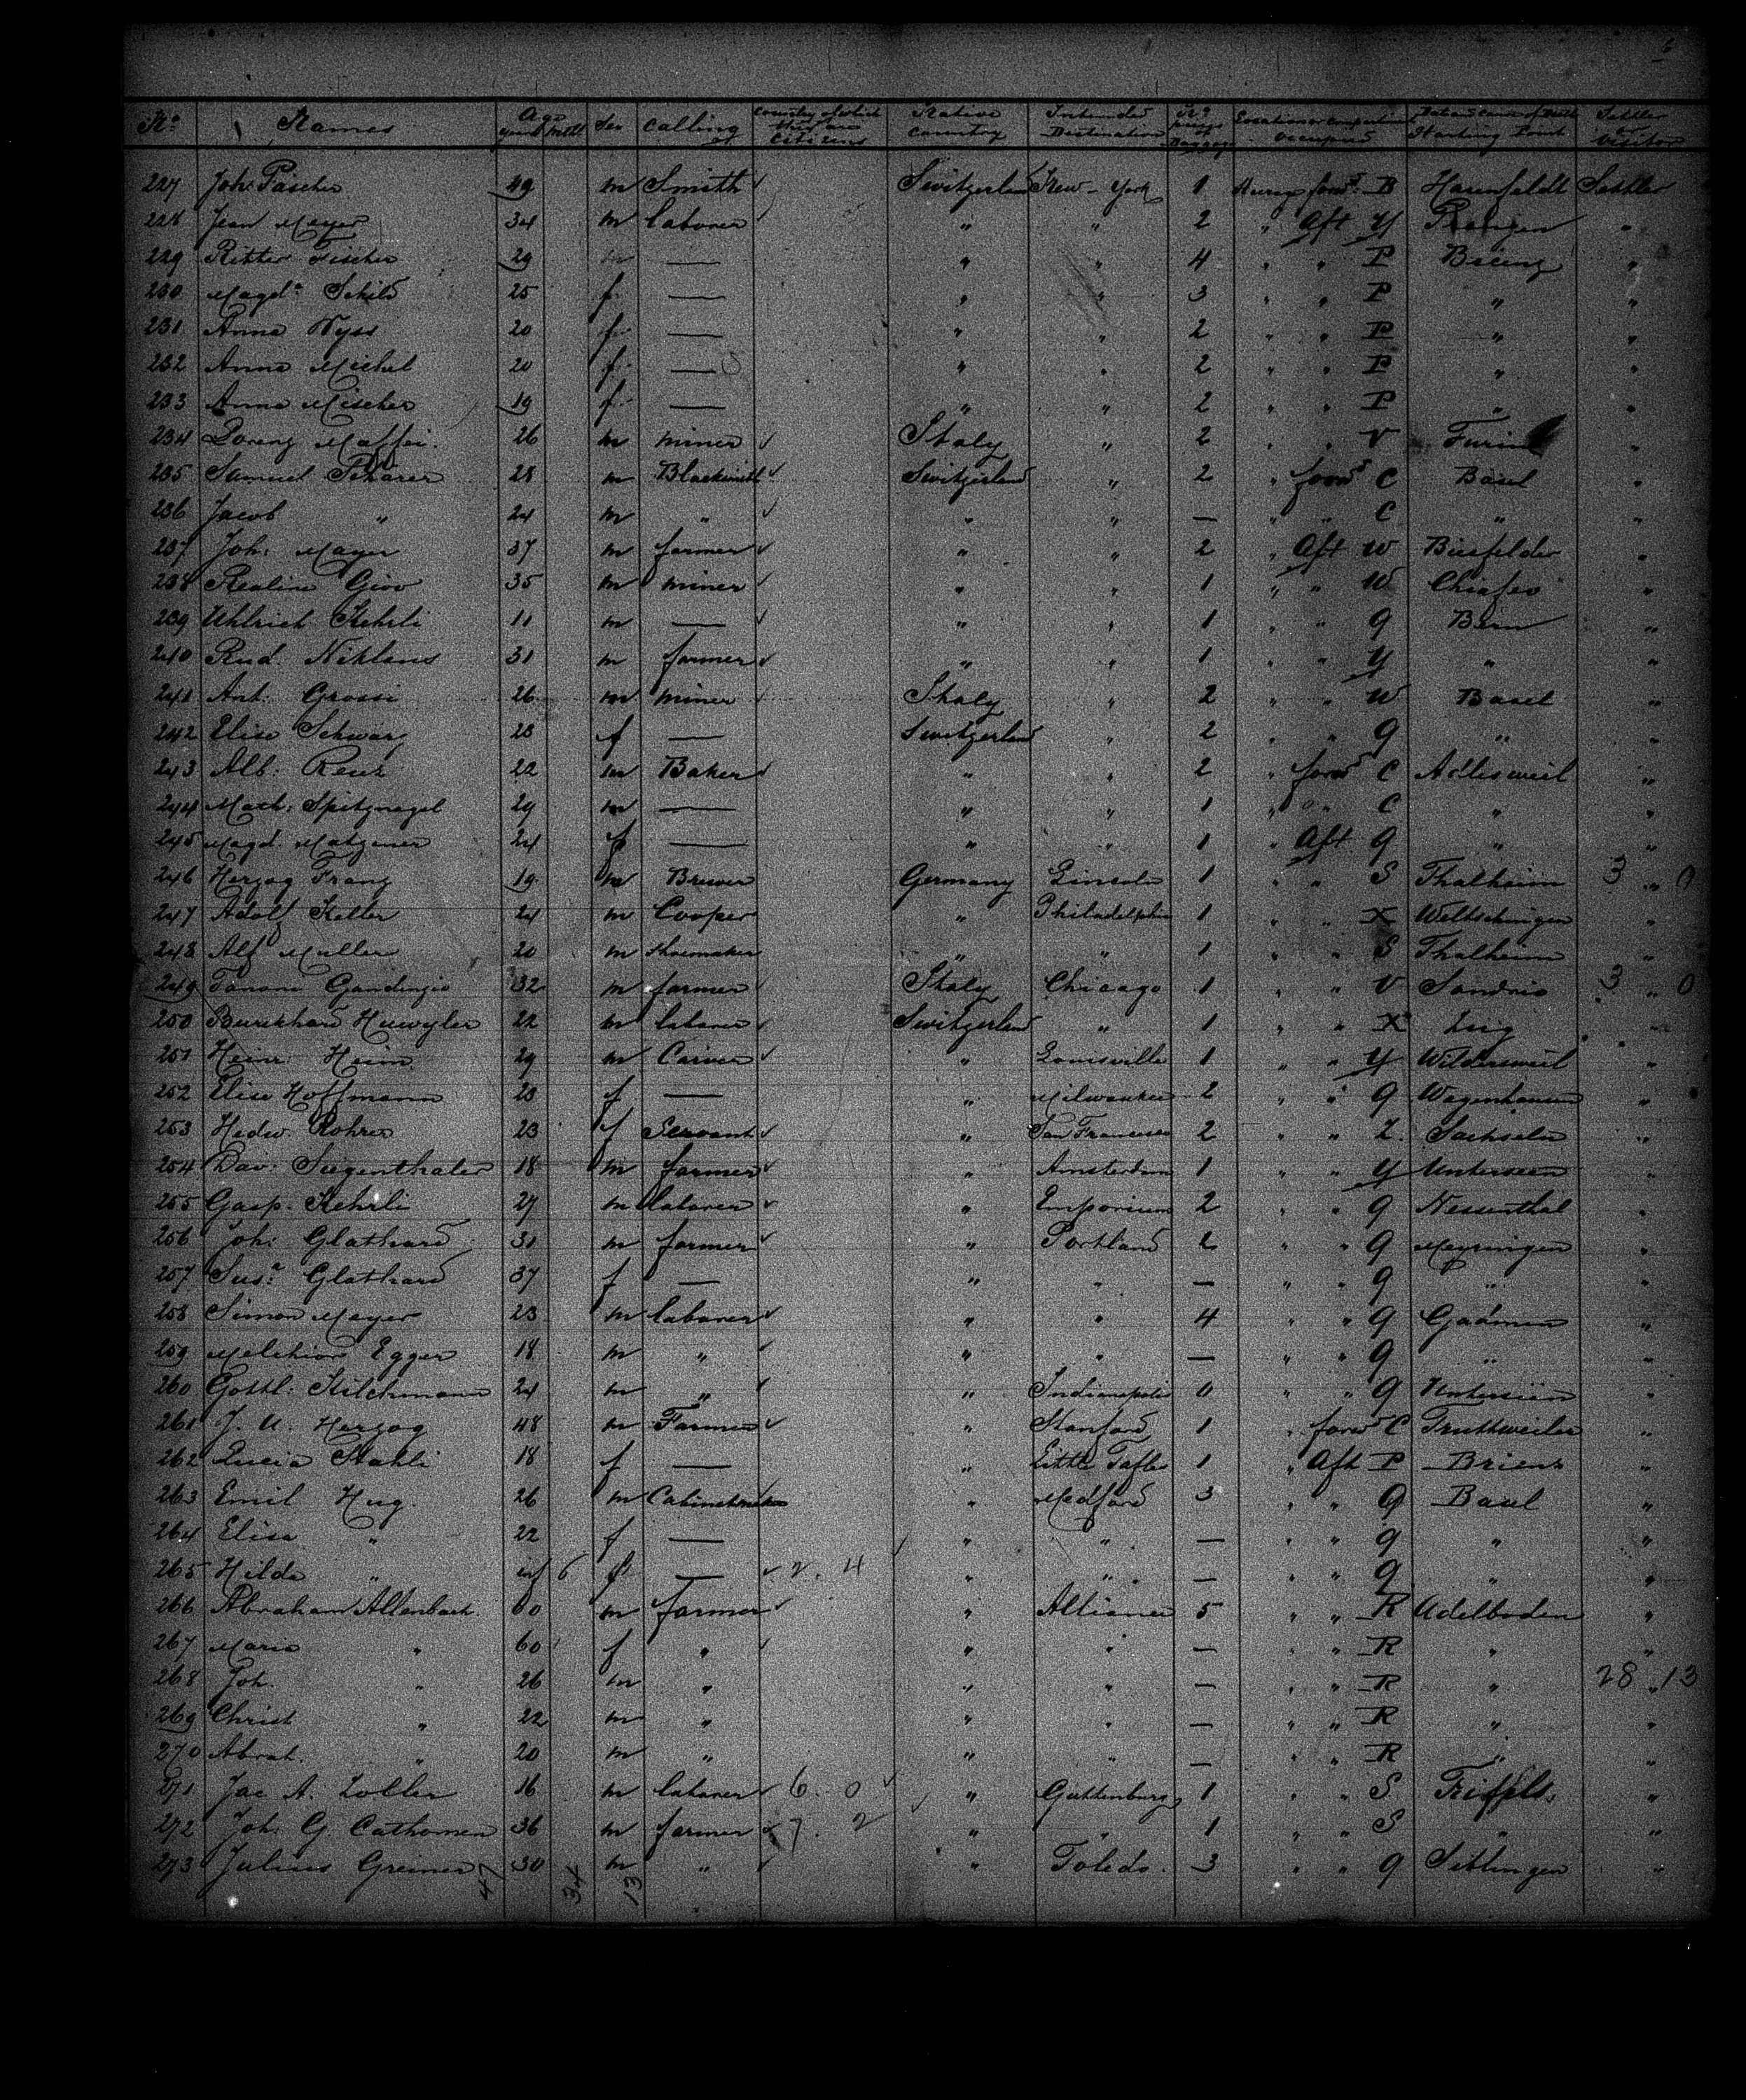 6
No Names Age years mth Sex Calling Country of which they are citizens Native Country Intended Destination No pieces Baggage Location or Compartment occupied Date and Cause of Death Starting Point Settler or Visitor
227 Joh: Pascher 49 m Smith Switzerland New-York 1 Steerage forwd B Harenfeldt Settler
228 Jean Mayer 34 m laborer " " 2 " Aft Y "
229 Ritter Fischer 29 m — " " 4 " " P Brienz "
230 Magda Schild 25 f — " " 3 " " P " "
231 Anna Wyss 20 f — " " 2 " " P " "
232 Anna Michel 20 f — " " 2 " " P " "
233 Anna Mischer 19 f — " " 2 " " P " "
234 Lorenz Maffei 26 m miner Italy " 2 " " V Turin "
235 Samuel Scharer 28 m Blacksmith Switzerland " 2 " forwd C Basel "
236 Jacob " 24 m " " " — " " C " "
237 Joh: Mayer 37 m farmer " " 2 " Aft W Birsfelder "
238 Giov 35 m miner " " 1 " " W Chiasso "
239 Uhlrich Kehrli 11 m — " " 1 " " Q Bern "
240 Rud. Niklaus 31 m farmer " " 1 " " Y " "
241 Ant: Grossi 26 m miner Italy " 2 " " W Basel "
242 Elise Schwarz 23 f — Switzerland " 2 " " Q " "
243 Alb: Renz 22 m Baker " " 2 " forwd C Adlisweil "
244 Math: Spitznagel 29 m — " " 1 " " C " "
245 Magd. Matzener 24 f — " " 1 " Aft Q " "
246 Herzog Franz 19 m Brewer Germany Lincoln 1 " " S Thalheim 3 " 0
247 Adolf Keller 24 m Cooper " Philadelphia 1 " " X Weltschingen "
248 Alf Muller 20 m Shoemaker " " 1 " " S Thalheim "
249 Gaudenzio 32 m farmer Italy Chicago 1 " " V Sondrio 3 " 0
250 Burckhard Huwyler 22 m laborer Switzerland " 1 " " X Zug "
251 Heinr Heim 29 m Carver " Louisville 1 " " Y Wildersweil "
252 Elise Hoffmann 23 f — " Milwaukee 2 " " Q Wagenhausen "
253 Hedw. Rohrer 23 f Servant " San Francisco 2 " " Z. Sachseln "
254 Dav: Siegenthaler 18 m farmer " Amsterdam 1 " " Y Unterseen "
255 Gasp. Kehrli 27 m laborer " Emporium 2 " " Q Nessenthal "
256 Joh: Glathard 31 m farmer " Portland 2 " " Q Meyringen "
257 Susa Glathard 37 f — " " — " " Q " "
258 Simon Mayer 23 m laborer " " 4 " " Q Gadmen "
259 Melchior Egger 18 m " " " — " " Q " "
260 Gottl: Kilchmann 24 m " " Indianapolis 0 " " Q Unterseen "
261 J. U. Herzog 48 m Farmer " Stanford 1 " forwd C Truttweiler "
262 Lucia Stahli 18 f — " Little Falls 1 " Aft P Brienz "
263 Emil Hug. 26 m Cabinetmaker " Medford 3 " " Q Basel "
264 Elisa " 22 f — " " — " " Q " "
265 Hilda " inf 6 f — 2. 4 " " — " " Q " "
266 Abraham Allenbach. 60 m farmer " Alliance 5 " " R Adelboden "
267 Maria " 60 f " " " — " " R " "
268 Joh. " 26 m " " " — " " R " 28 " 13
269 Christ " 22 m " " " — " " R " "
270 Abrah. " 20 m " " " — " " R " "
271 Jac A. Zoller 16 m laborer 6. 0 " Guttenburg 1 " " S "
272 Joh. G. Cathomen 36 m farmer 7. 2 " " 1 " " S " "
273 Julius Greiner 30 m " " Toledo. 3 " " Q Sitlingen "
47 34 13